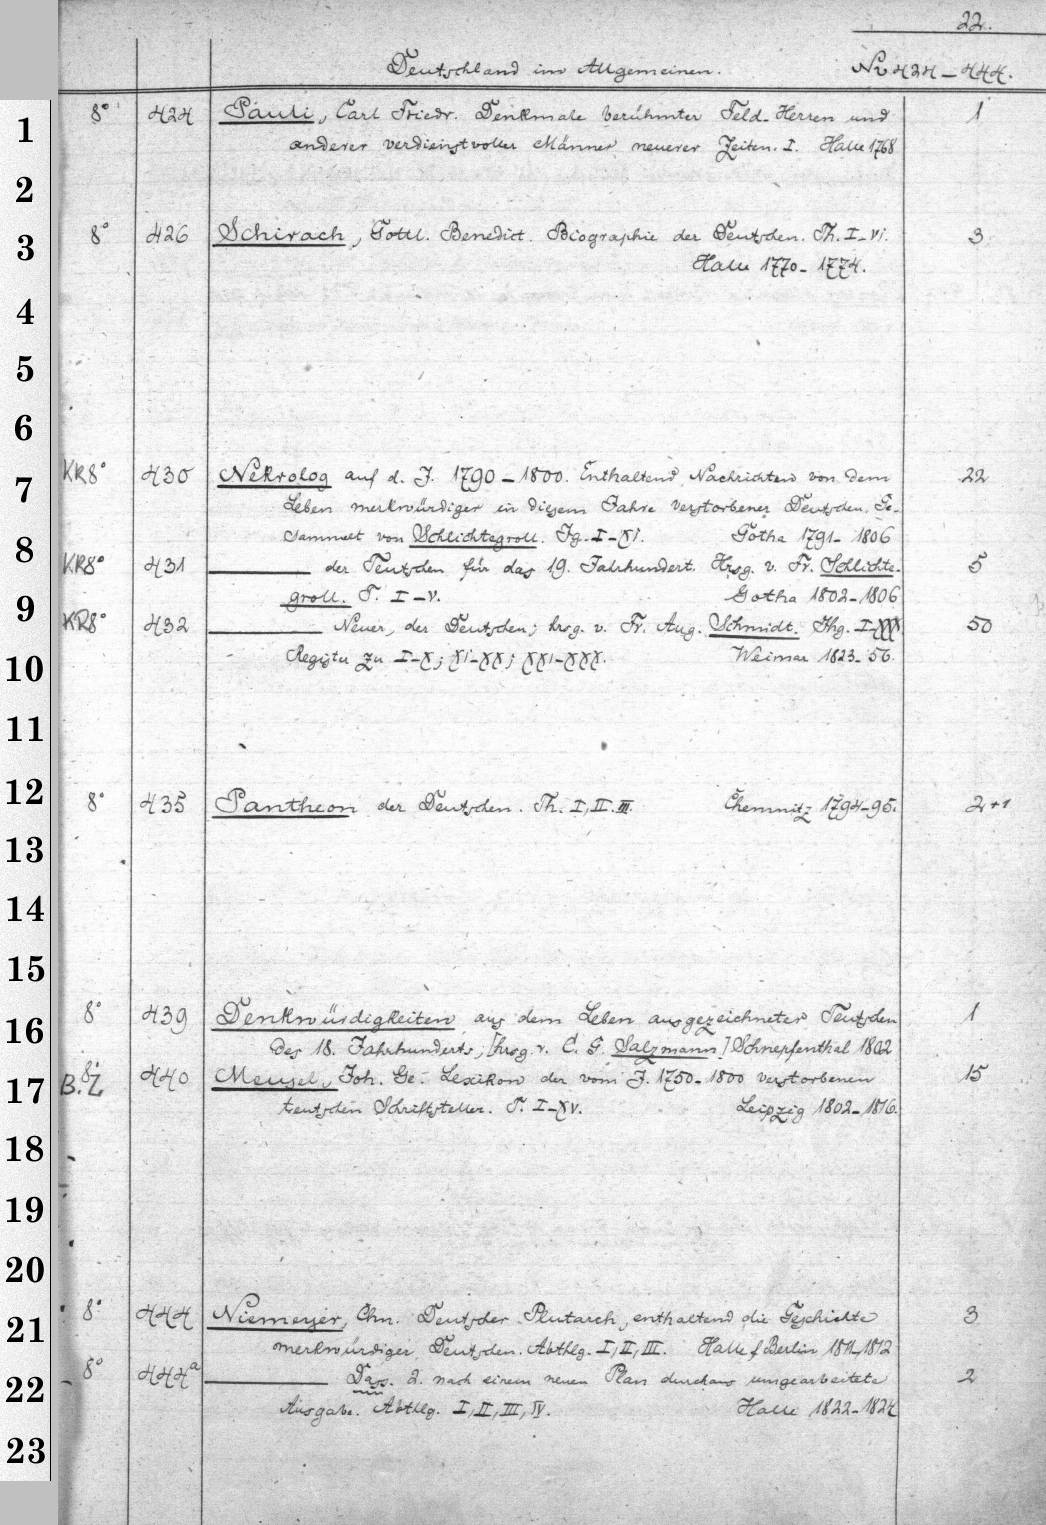 22.
Deutschland im Allgemeinen. No 424–444.
1 8° 424 Pauli, Carl Friedr. Denkmale berühmter Feld-Herren und 1
anderer verdienstvoller Männer neuerer Zeiten. I. Halle 1768
2
3 8° 426 Schirach, Gottl. Benedict. Biographie der Deutschen. Th. I–VI. 3
Halle 1770–1774.
4
5
6
7 KR8° 430 Nekrolog auf d. J. 1790–1800. Enthaltend Nachrichten von dem 22
Leben merkwürdiger in diesem Jahre verstorbener Deutschen. Ge-
sammelt von Schlichtegroll. Jg. I–XI. Gotha 1791–1806
8 KR8° 431 der Teutschen für das 19. Jahrhundert. Hrsg. v. Fr. Schlichte- 5
9 groll. T. I–V. Gotha 1802–1806
KR8° 432 Neuer, der Deutschen; hrsg. v. Fr. Aug. Schmidt. Jhg. I–XXX 50
10 Register zu I–X; XI–XX; XXI–XXX. Weimar 1823–56.
11
12 8° 435 Pantheon der Deutschen. Th. I, II. III. Chemnitz 1794–95. 2+1
13
14
15
16 8° 439 Denkwürdigkeiten aus dem Leben ausgezeichneter Teutschen 1
des 18. Jahrhunderts, [hrsg. v. C. G. Salzmann] Schnepfenthal 1802
17 8° B.Z 440 Meusel, Joh. Ge. Lexikon der vom J. 1750–1800 verstorbenen 15
teutschen Schriftsteller. T. I–XV. Leipzig 1802–1816.
18
19
20
21 8° 444 Niemeyer, Chn. Deutscher Plutarch, enthaltend die Geschichte 3
merkwürdiger Deutschen. Abthlg. I, II, III. Halle & Berlin 1811–1812
22 8° 444a Dass. 2. nach einem neuen Plan durchaus umgearbeitete 2
Ausgabe. Abtlg. I, II, III, IV. Halle 1822–1824
23